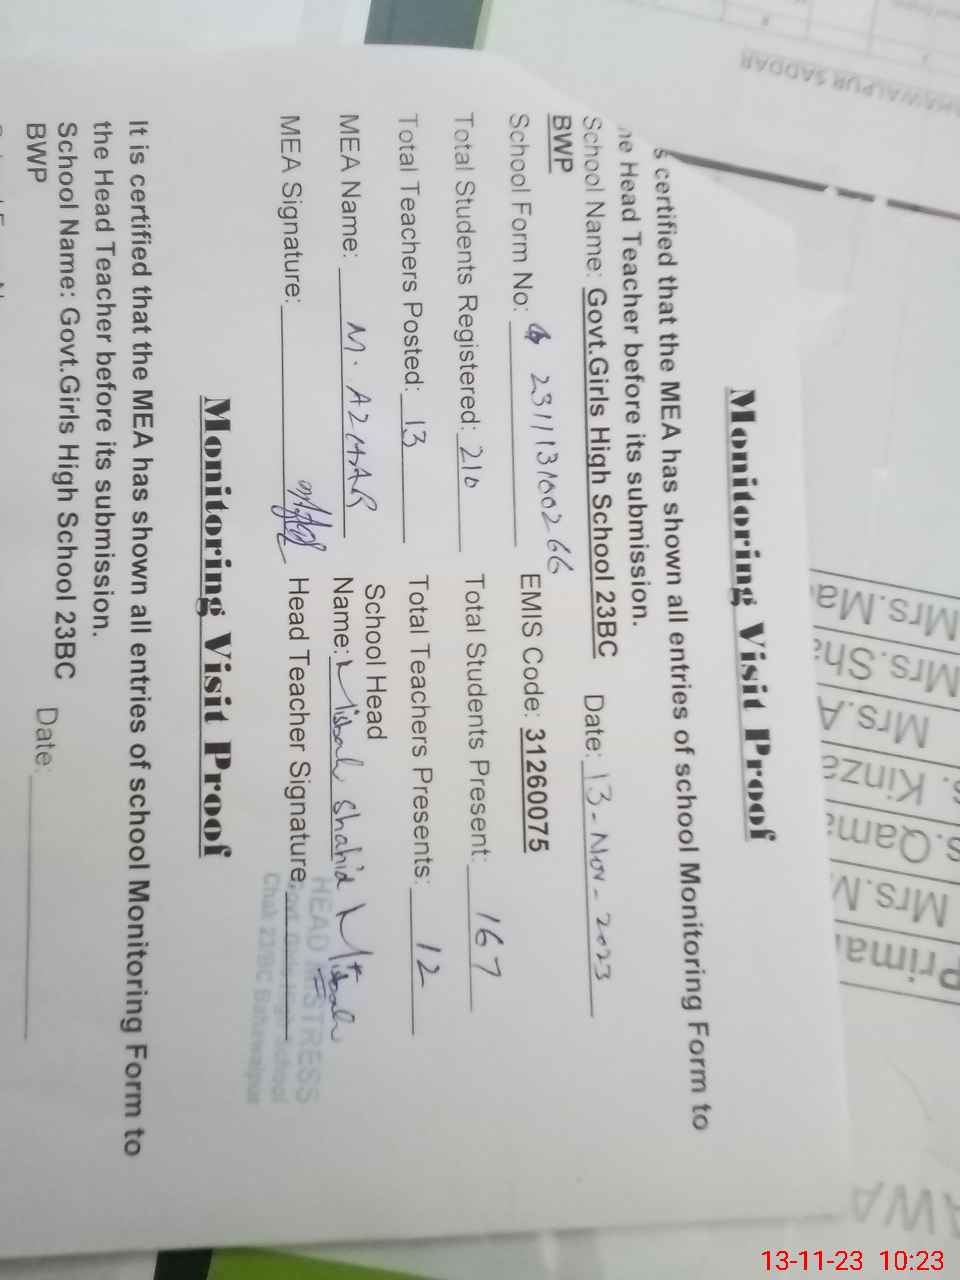 Monitoring Visit Proof
s certified that the MEA has shown all entries of school Monitoring Form to
he Head Teacher before its submission.
School Name: Govt.Girls High School 23BC Date: 13-Nov-2023
BWP
School Form No: 231113100266 EMIS Code: 31260075
Total Students Registered: 210 Total Students Present: 167
Total Teachers Posted: 13 Total Teachers Presents: 12
School Head
MEA Name: M. AZHAR Name: Misbah Shahid
MEA Signature: Head Teacher Signature
HEAD MISTRESS
Govt. Girls High School
Chak 23BC Bahawalpur
Monitoring Visit Proof
It is certified that the MEA has shown all entries of school Monitoring Form to
the Head Teacher before its submission.
School Name: Govt.Girls High School 23BC Date:
BWP
BAHAWALPUR SADDAR
Primar
Mrs.M
s.Qama
s. Kinza
Mrs.A
Mrs.Sha
Mrs.Ma
AWA
13-11-23 10:23